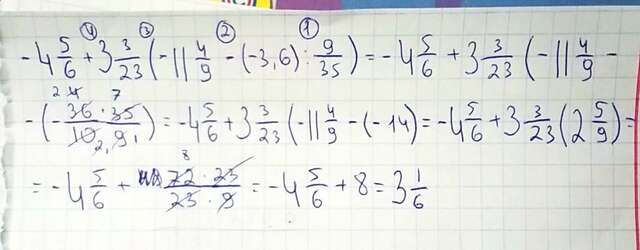 ④ ③ ② ①
-4 5/6 + 3 3/23 (-11 4/9 - (-3,6) : 9/35) = -4 5/6 + 3 3/23 (-11 4/9 -
2 4 7
- (- 36 · 35 / 10 2, 9 1) = -4 5/6 + 3 3/23 (-11 4/9 - (-14) = -4 5/6 + 3 3/23 (2 5/9) =
8
= -4 5/6 + 72 · 23 / 23 · 9 = -4 5/6 + 8 = 3 1/6